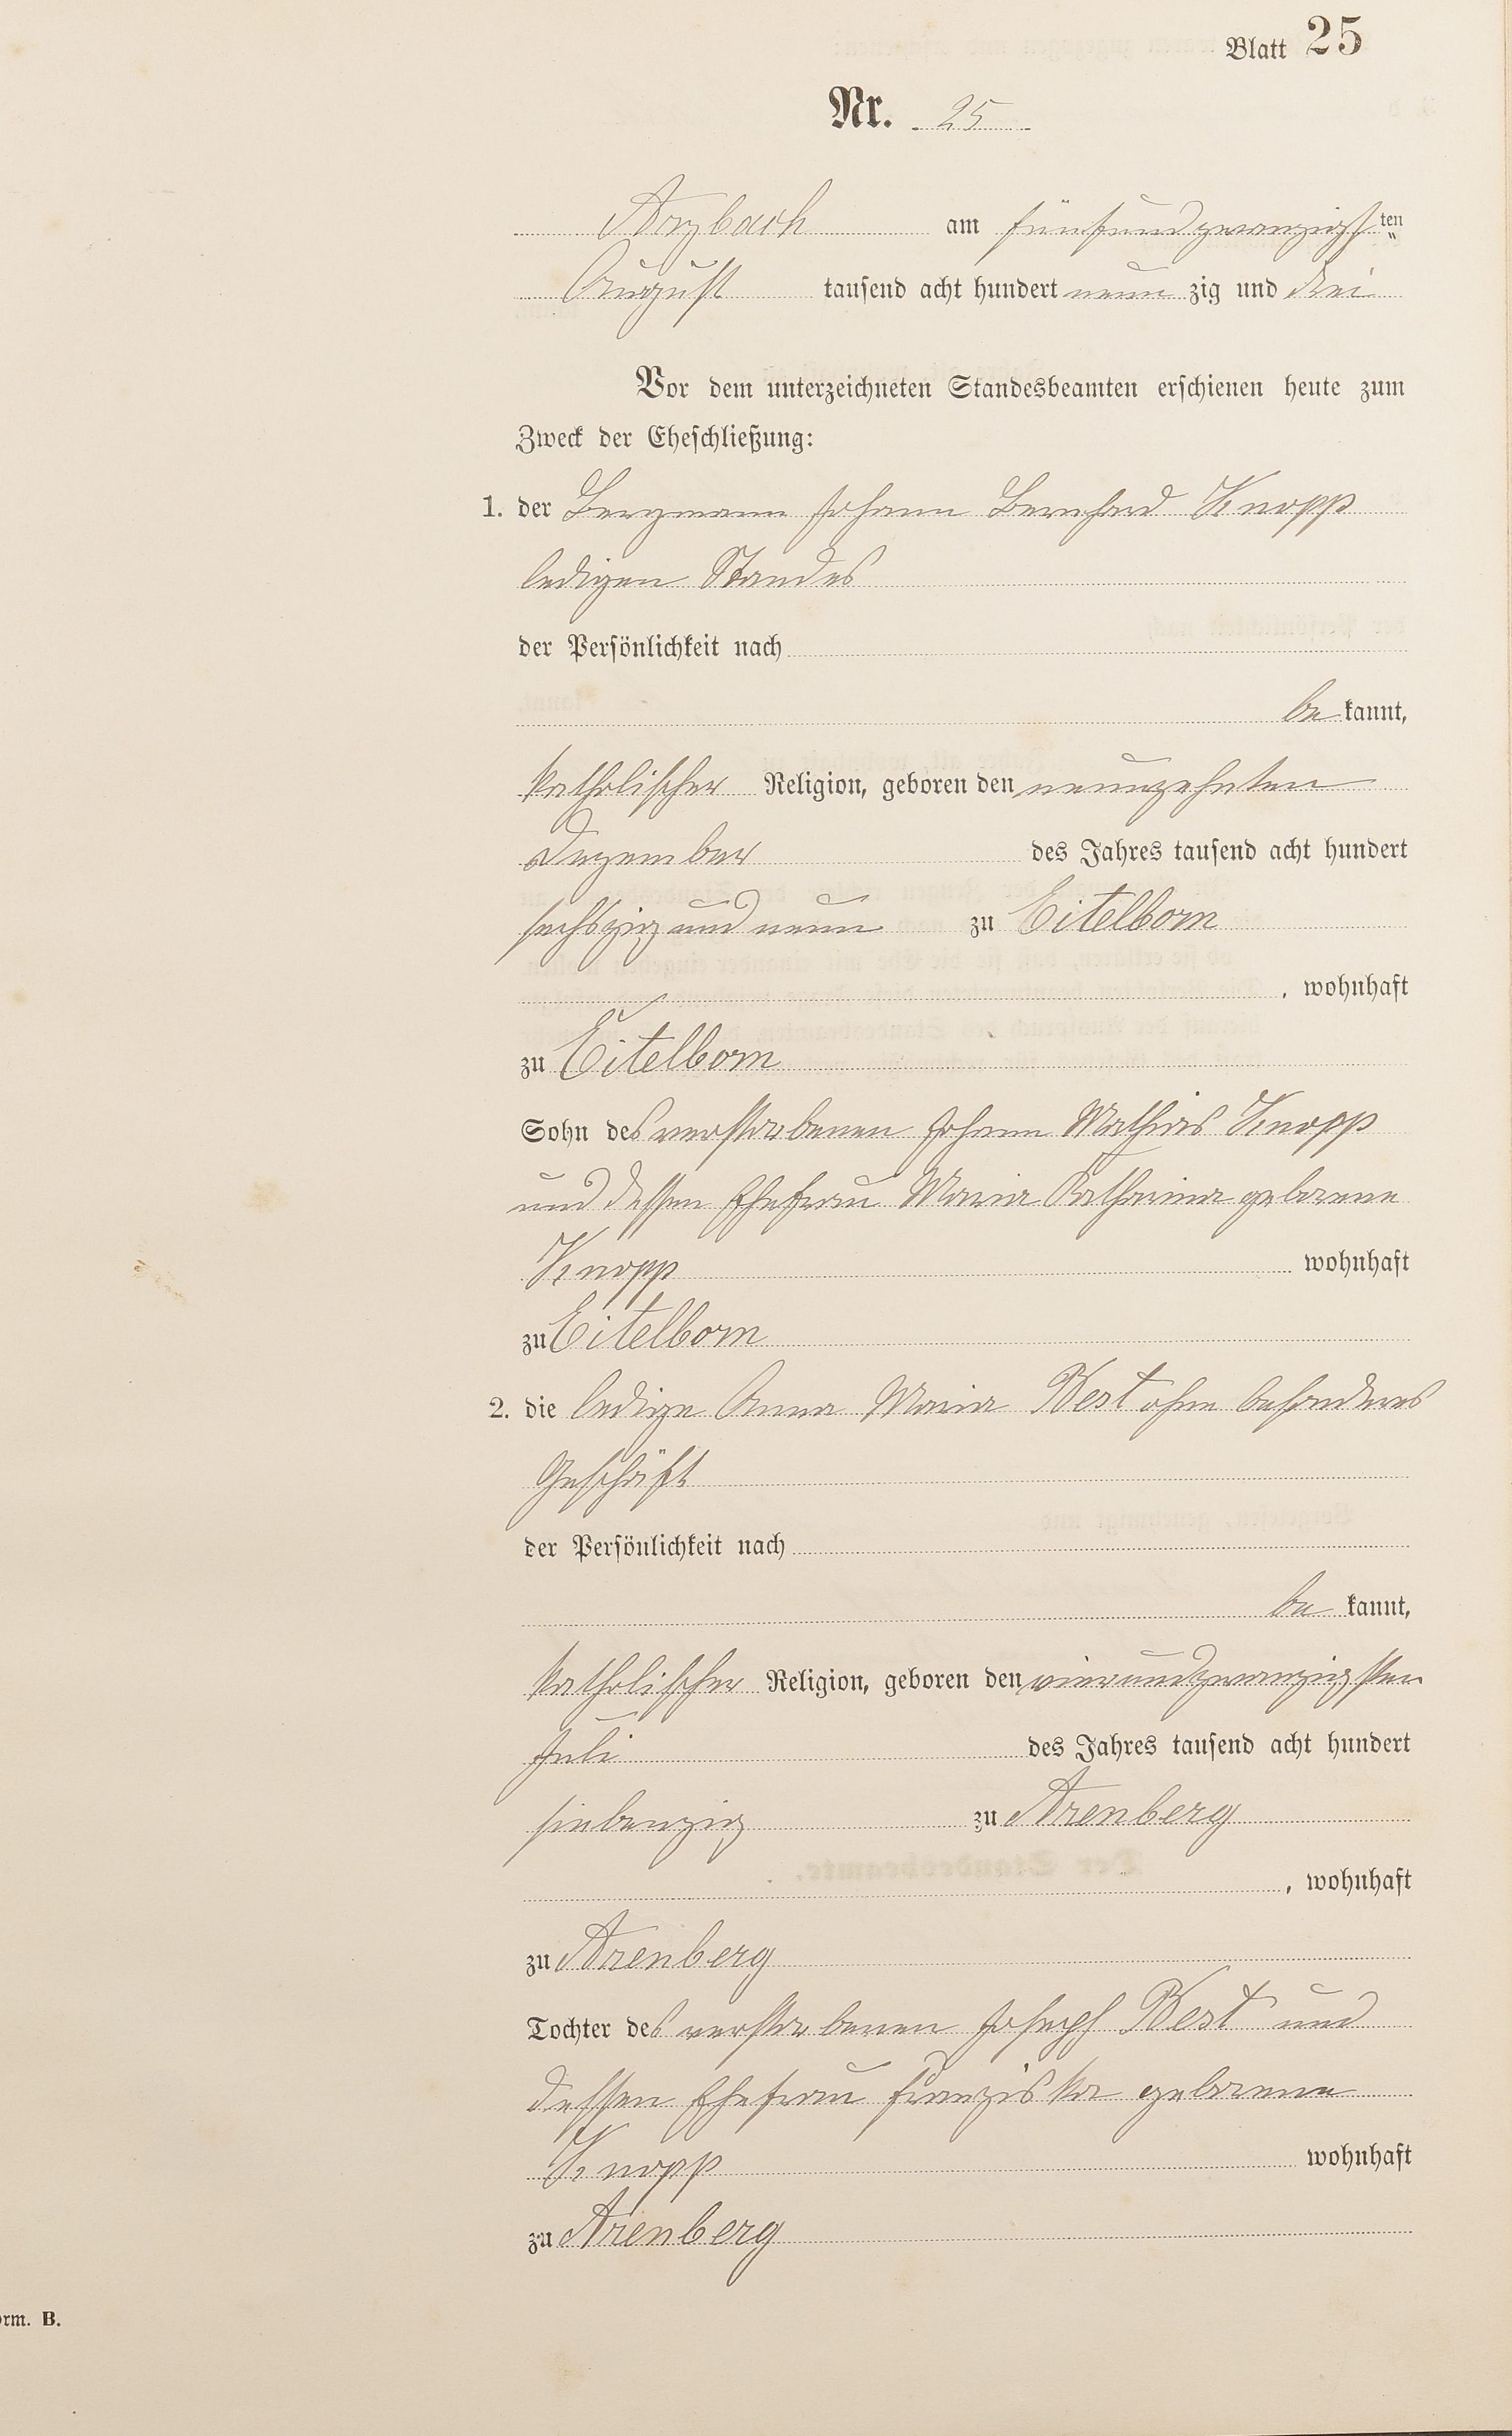 Blatt 25
Nr. 25
Arzbach am fünfundzwanzigsten
August tausend acht hundert neun zig und drei
Vor dem unterzeichneten Standesbeamten erschienen heute zum
Zweck der Eheschließung:
1. der Bergmann Johann Bernhard Knopp
ledigen Standes
der Persönlichkeit nach
be kannt,
katholischer Religion, geboren den neunzehnten
Dezember des Jahres tausend acht hundert
sechszig und neun zu Eitelborn
, wohnhaft
zu Eitelborn
Sohn des verstorbenen Johann Mathias Knopp
und dessen Ehefrau Maria Katharina geborene
Knopp wohnhaft
zu Eitelborn
2. die ledige Anna Maria Best ohne besonderes
Geschäft
der Persönlichkeit nach
be kannt,
katholischer Religion, geboren den vierundzwanzigsten
Juli des Jahres tausend acht hundert
siebenzig zu Arenberg
, wohnhaft
zu Arenberg
Tochter des verstorbenen Joseph Best und
dessen Ehefrau Franziska geborene
Knopp wohnhaft
zu Arenberg
orm. B.